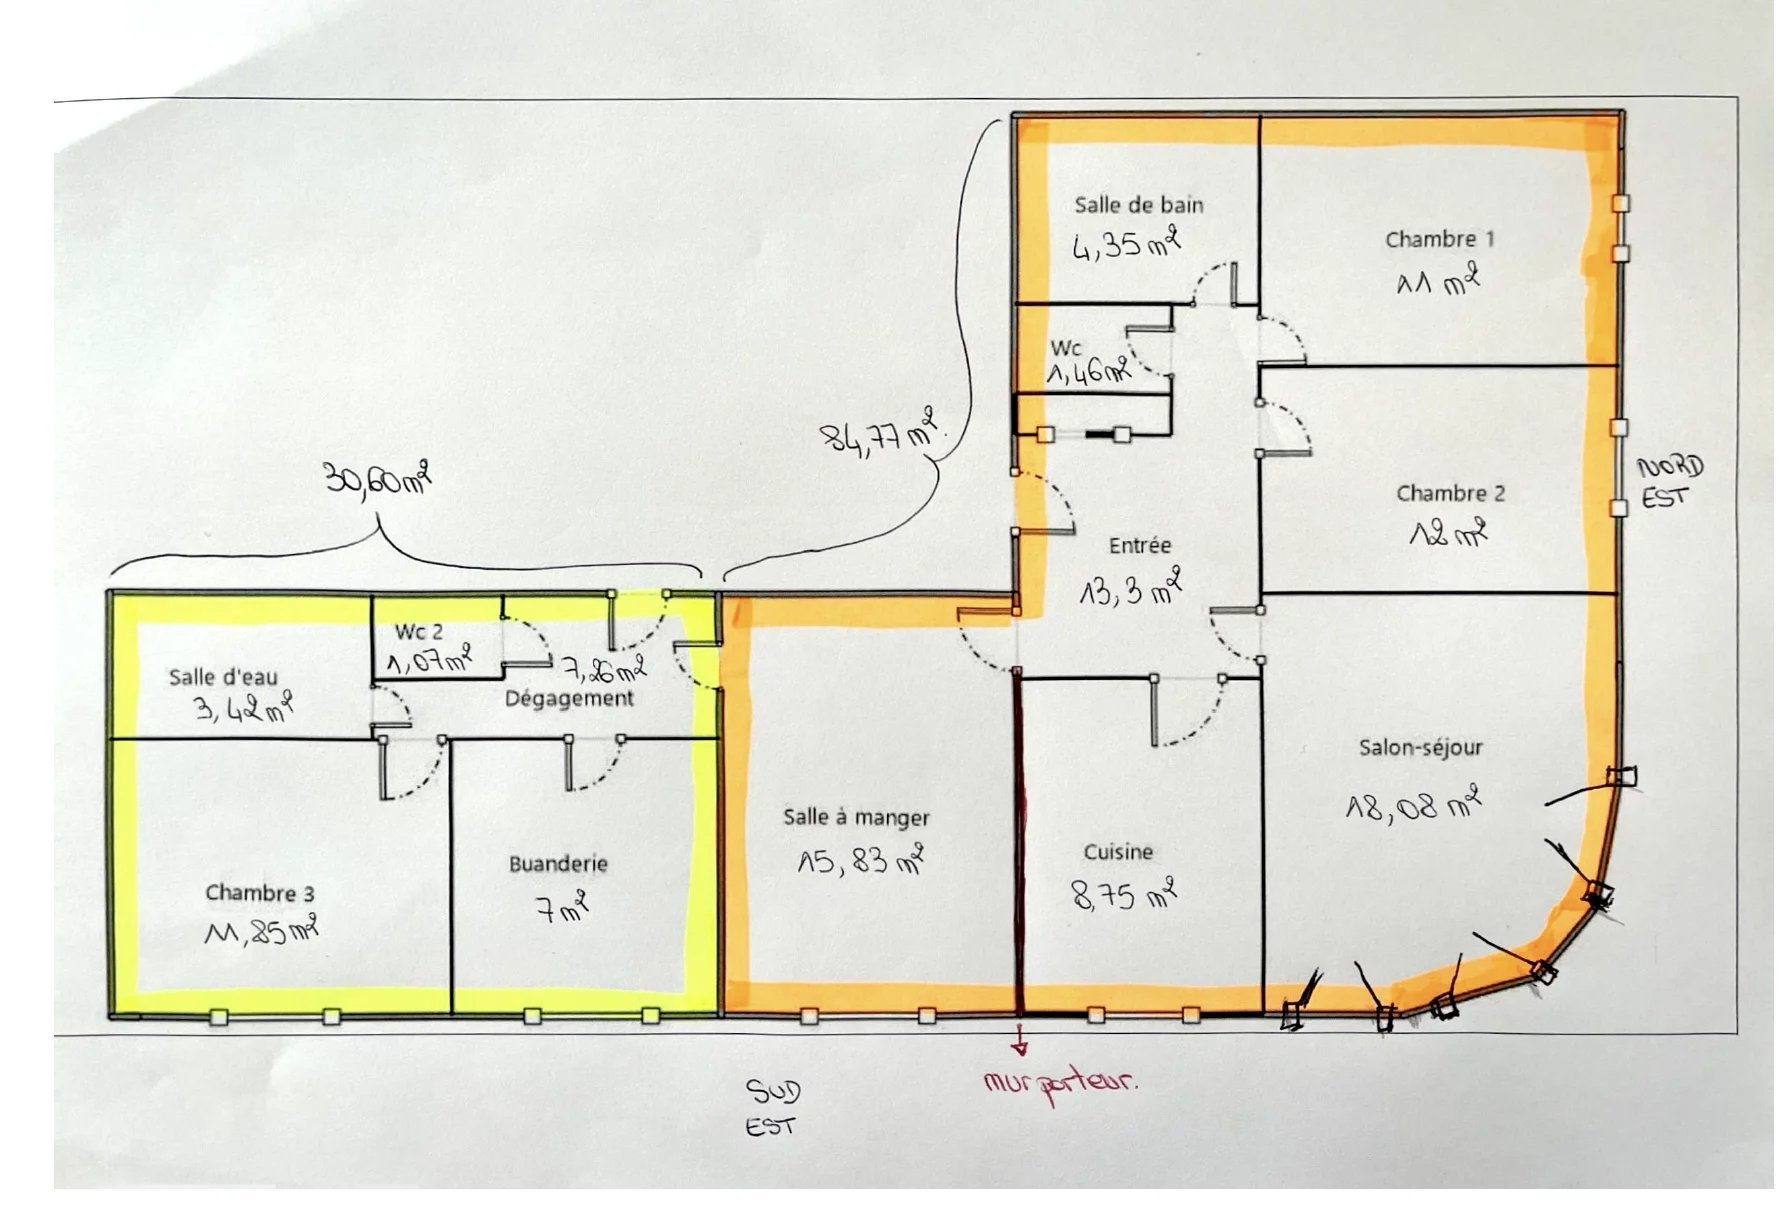 Salle de bain
4,35 m²
Chambre 1
11 m²
Wc
1,46 m²
84,77 m².
30,60 m²
NORD
EST
Chambre 2
12 m²
Entrée
13,3 m²
Wc 2
1,07 m²
7,26 m²
Dégagement
Salle d'eau
3,42 m²
Salon-séjour
18,08 m²
Salle à manger
15,83 m²
Cuisine
8,75 m²
Buanderie
7 m²
Chambre 3
11,85 m²
mur porteur.
SUD
EST